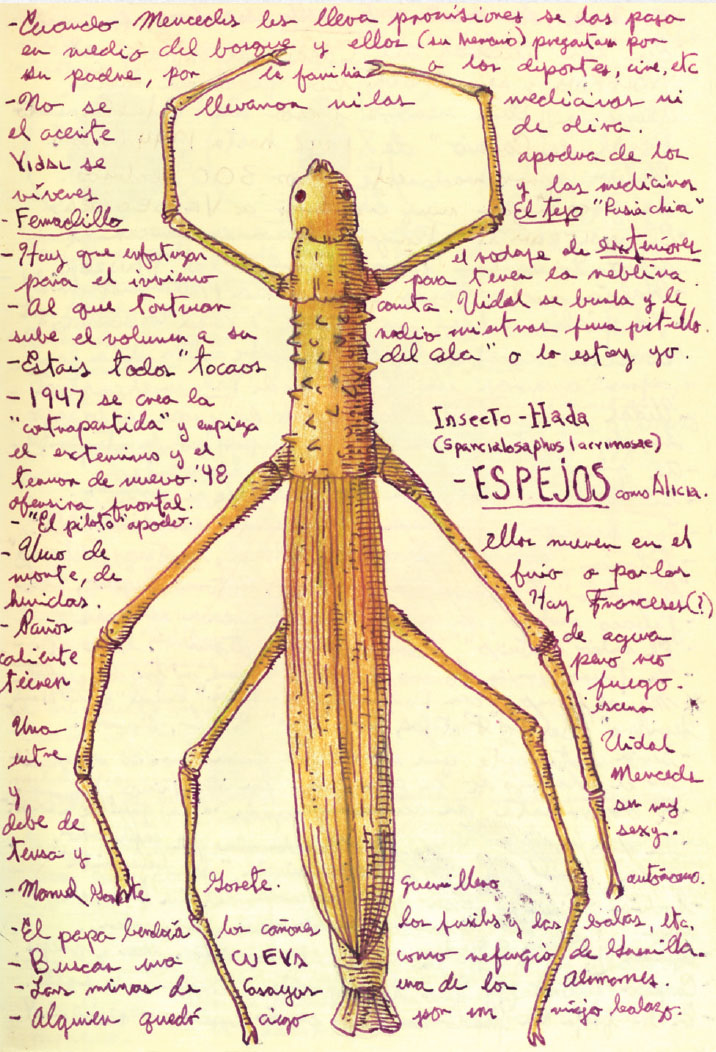 - Cuando Mercedes les lleva provisiones se las pasa
en medio del bosque y ellos (su hermano) preguntan por
su padre, por la familia o los deportes, cine, etc
- No se llevaron ni las medicinas ni
el aceite de oliva.
Vidal se apodera de los
víveres y las medicinas
- Fermachillo El tejo "Rusia chica"
- Hay que enfatizar el rodaje de exteriores
para el invierno para tener la neblina.
- Al que torturan canta. Vidal se burla y le
sube el volumen a su radio mientras fuma pitillo.
- Estáis todos "tocaos del ala" o lo estoy yo.
- 1947 se crea la
"contrapartida" y empieza
el exterminio y el
terror de nuevo. '48
ofensiva frontal.
- "El piloto" apodo.
Insecto-Hada
(Sparcialosaphos larrimosae)
- ESPEJOS como Alicia.
- Uno de ellos mueren en el
monte, de frío o por las
heridas. Hay Franceses (?)
- Paños de agua
caliente pero no
tienen fuego.
Una escena
entre Vidal
y Mercedes
debe de ser muy
tensa y sexy.
- Manuel Gorete Gorete. Guerrillero autónomo.
- El papa bendecía los cañones los fusiles y las balas, etc.
- Buscar una CUEVA como refugio de Guerrilla.
- Las minas de Casayus era de los Alemanes.
- Alguien quedó ciego por un viejo balazo.